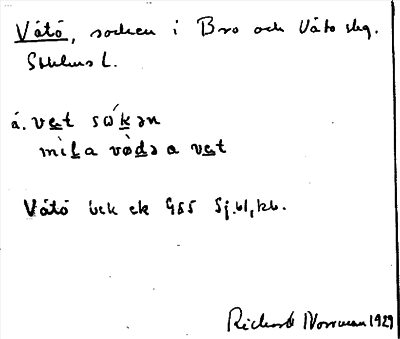 Vätö, socken i Bro och Vätö skg.
Sthlms L.
å. vet sókən
mìla vòdə a vet
Vätö bek ek G55 Sj.bl, kb.
Richard Norrman 1929